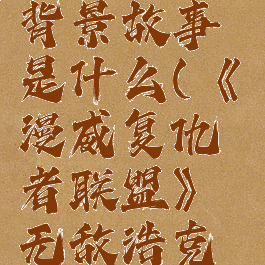 背景故事
是什么(《
漫威复仇
者联盟》
无敌浩克